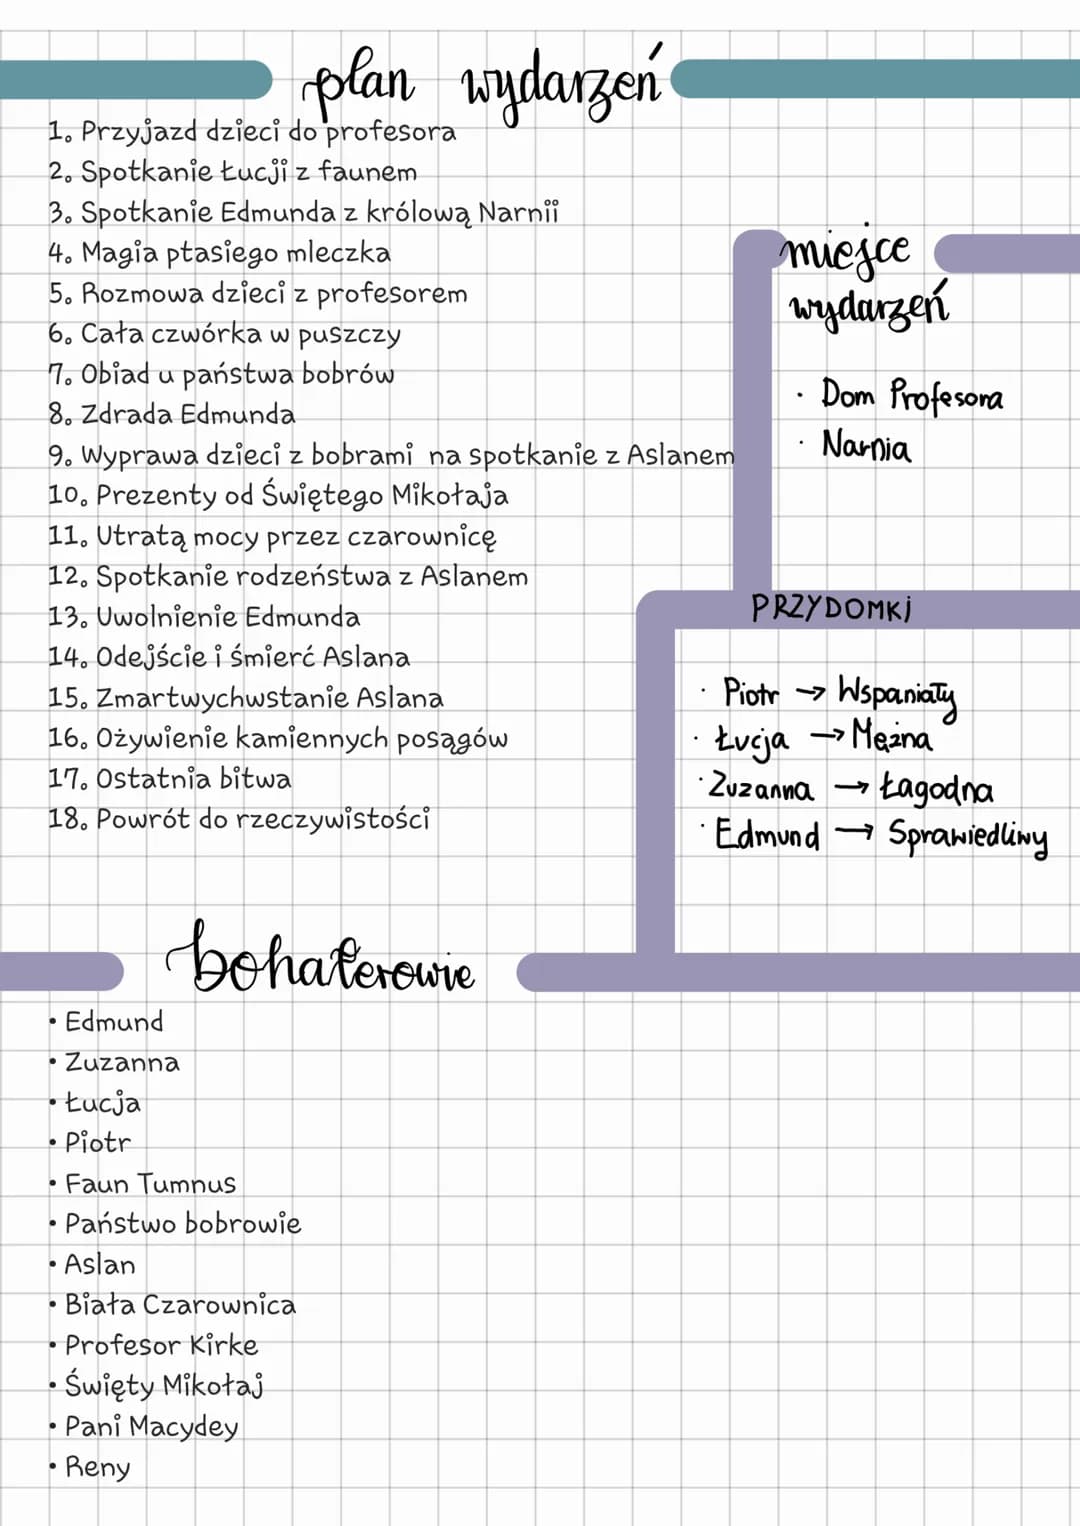 plan wydarzeń
1. Przyjazd dzieci do profesora
2. Spotkanie Łucji z faunem
3. Spotkanie Edmunda z królową Narnii
4. Magia ptasiego mleczka
5. Rozmowa dzieci z profesorem
6. Cała czwórka w puszczy
7. Obiad u państwa bobrów
8. Zdrada Edmunda
9. Wyprawa dzieci z bobrami na spotkanie z Aslanem
10. Prezenty od Świętego Mikołaja
11. Utratą mocy przez czarownicę
12. Spotkanie rodzeństwa z Aslanem
13. Uwolnienie Edmunda
14. Odejście i śmierć Aslana
15. Zmartwychwstanie Aslana
16. Ożywienie kamiennych posągów
17. Ostatnia bitwa
18. Powrót do rzeczywistości
miejce
wydarzeń
· Dom Profesora
· Narnia
PRZYDOMKi
· Piotr → Wspaniały
· Łucja → Mężna
· Zuzanna → Łagodna
· Edmund → Sprawiedliwy
bohaterowie
• Edmund
• Zuzanna
• Łucja
• Piotr
• Faun Tumnus
• Państwo bobrowie
• Aslan
• Biała Czarownica
• Profesor Kirke
• Święty Mikołaj
• Pani Macydey
• Reny